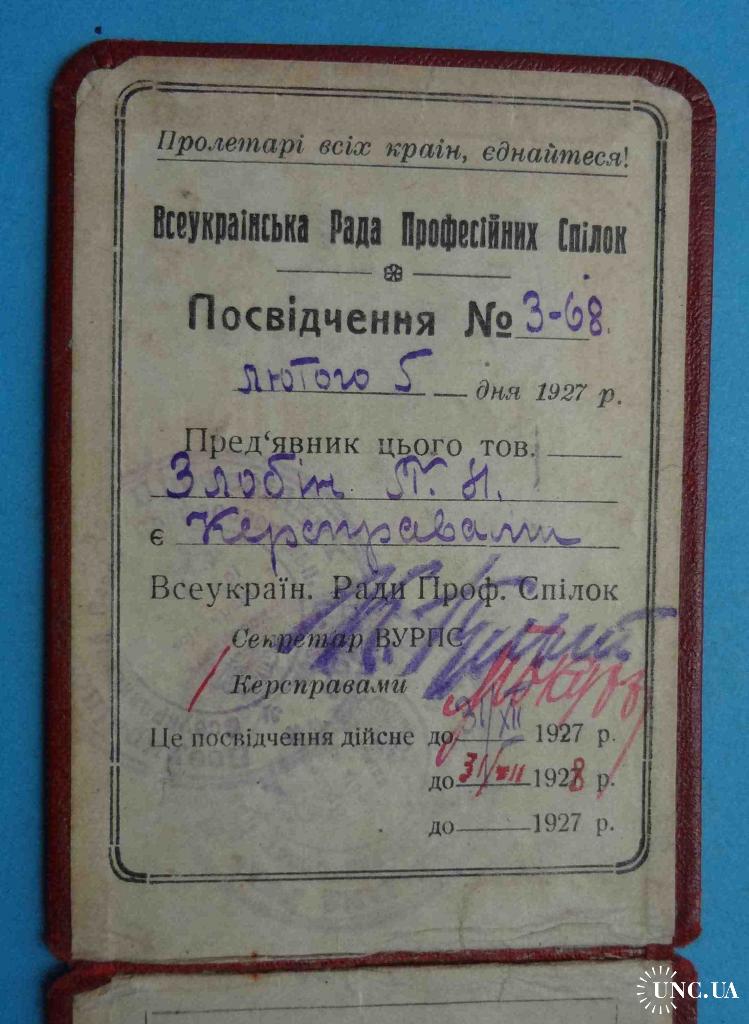 Пролетарі всіх країн, єднайтеся!
Всеукраїнська Рада Професійних Спілок
Посвідчення № 3-68.
лютого 5 — дня 1927 р.
Пред'явник цього тов.
Злобін П. Н.
є Керсправами
Всеукраїн. Ради Проф. Спілок
Секретар ВУРПС
Керсправами
Це посвідчення дійсне до 31/XII 1927 р.
до 31/XII 1928 р.
до 1927 р.
UNC.UA